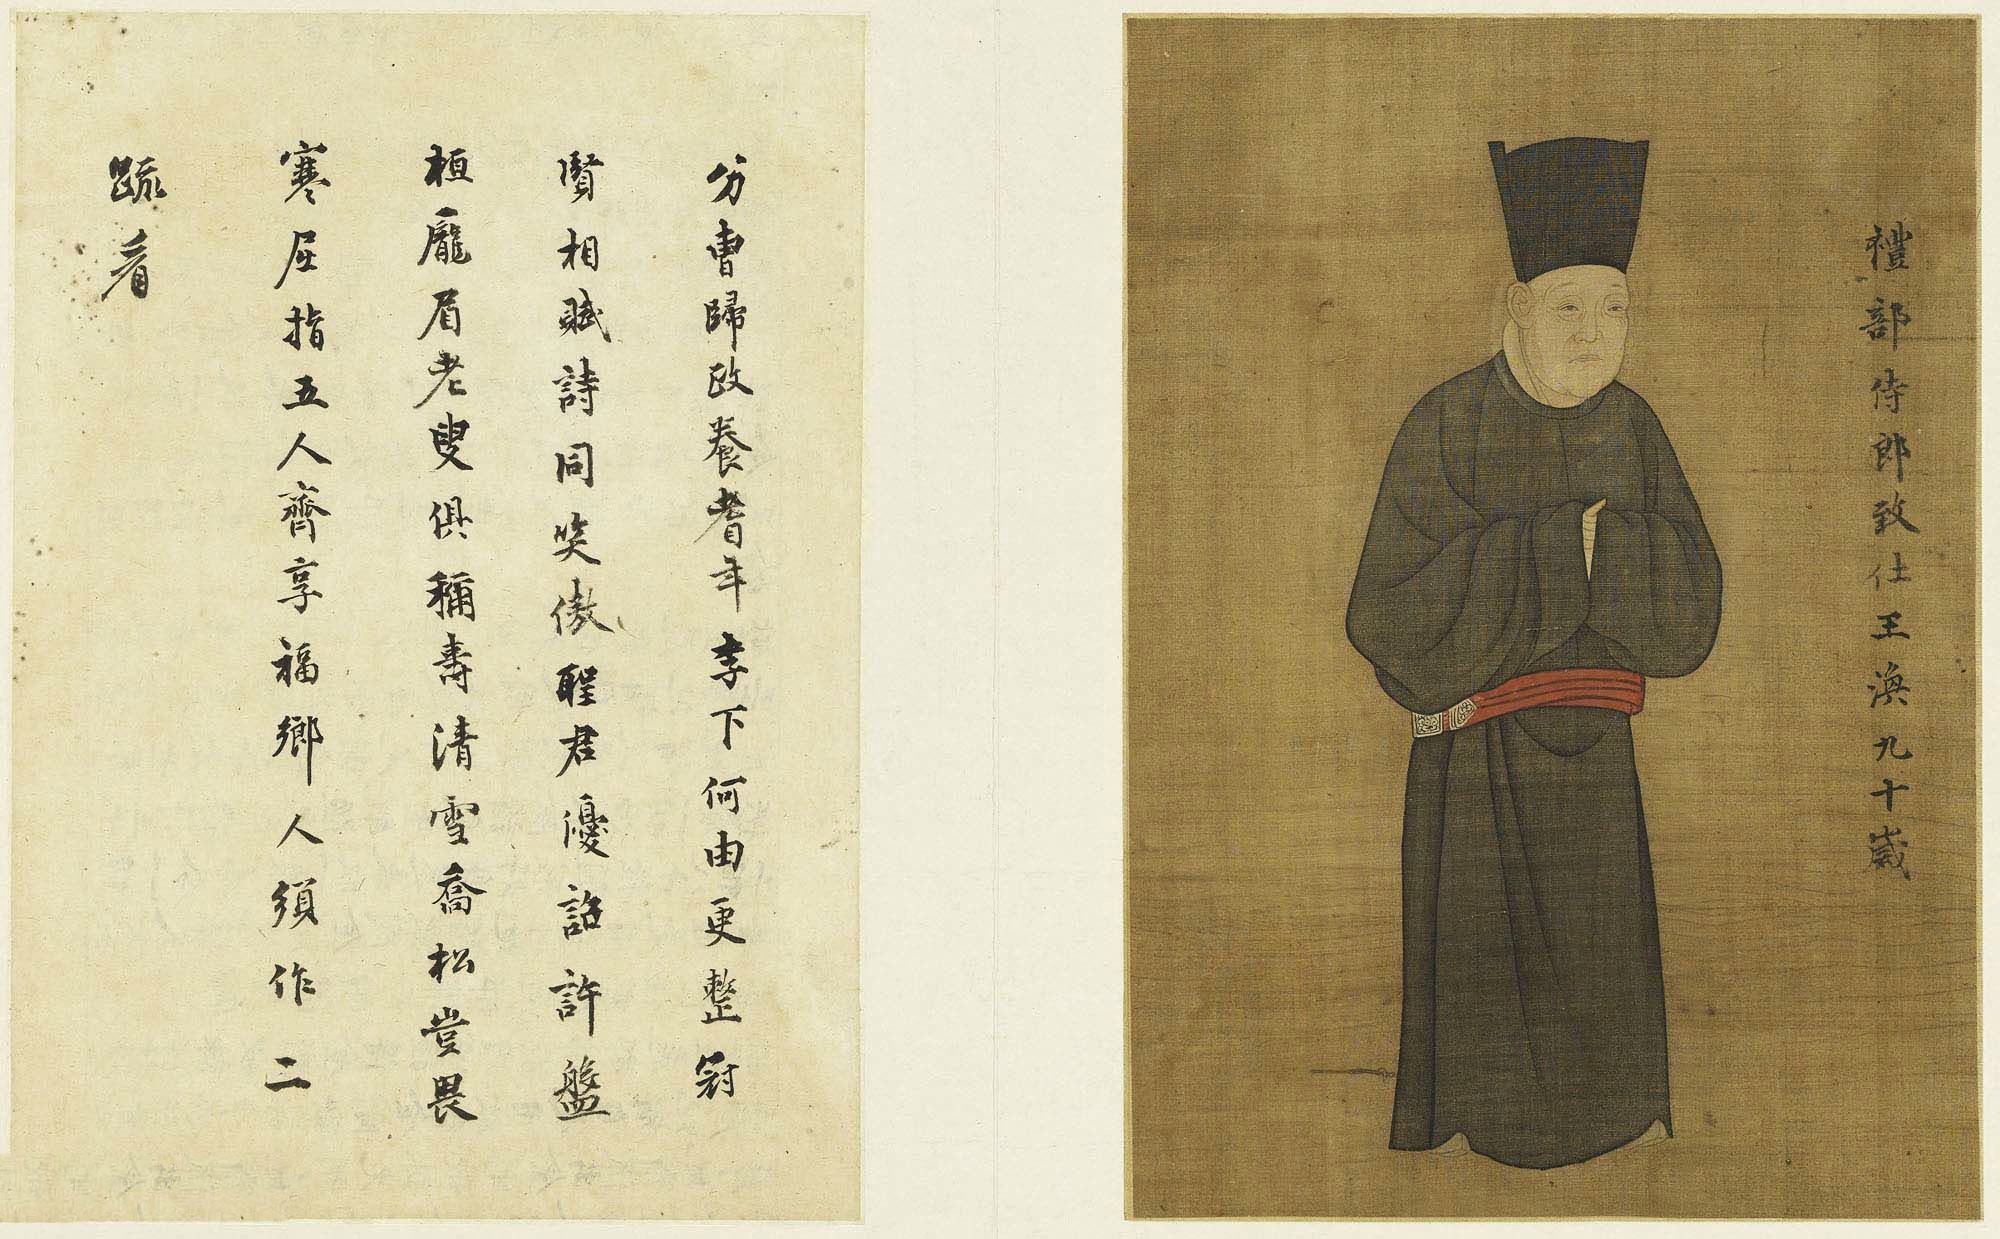 禮部侍郎致仕王渙九十歲
分曹歸政養耆年李下何由更整冠
賢相賦詩同笑傲聖君優詔許盤
桓龎眉老叟俱稱壽清雪喬松豈畏
寒屈指五人齊享福鄉人須作二
䟽看